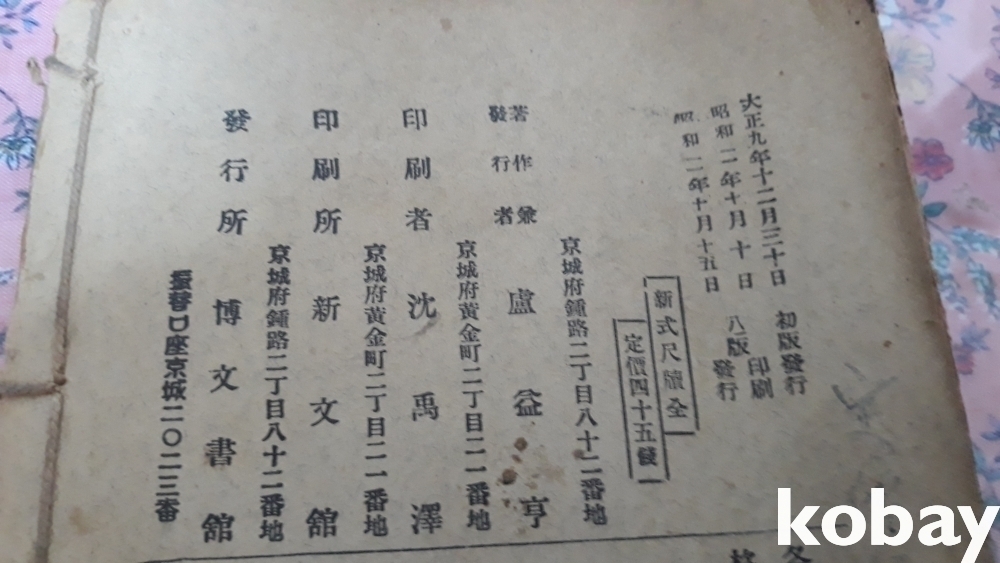 大正九年十二月三十日 初版發行
昭和二年十月十日 八版印刷
昭和二年十月十五日 發行
新式尺牘全
定價四十五錢
京城府鍾路二丁目八十二番地
著作兼發行者 盧益亨
京城府黃金町二丁目二一番地
印刷者 沈禹澤
京城府黃金町二丁目二一番地
印刷所 新文舘
京城府鍾路二丁目八十二番地
發行所 博文書舘
振替口座京城二〇二三番
kobay